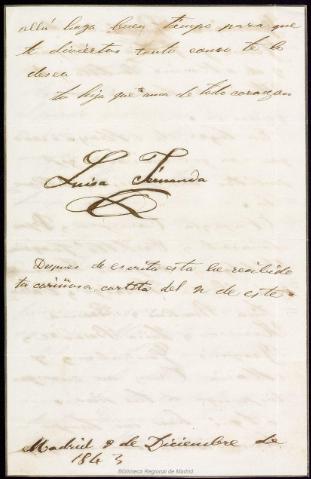 allí haga buen tiempo para que
te diviertas tanto como te lo
desea
tu hija que ama de todo corazon
Luisa Fernanda
Despues de escrita esta he recibido
tu cariñosa cartita del 2 de este
Madrid 8 de Diciembre de
1843
Biblioteca Regional de Madrid